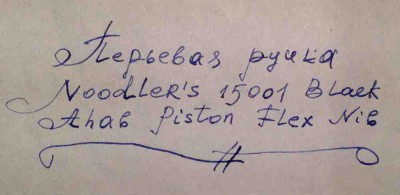 Перьевая ручка
Noodler's 15001 Black
Ahab Piston Flex Nib